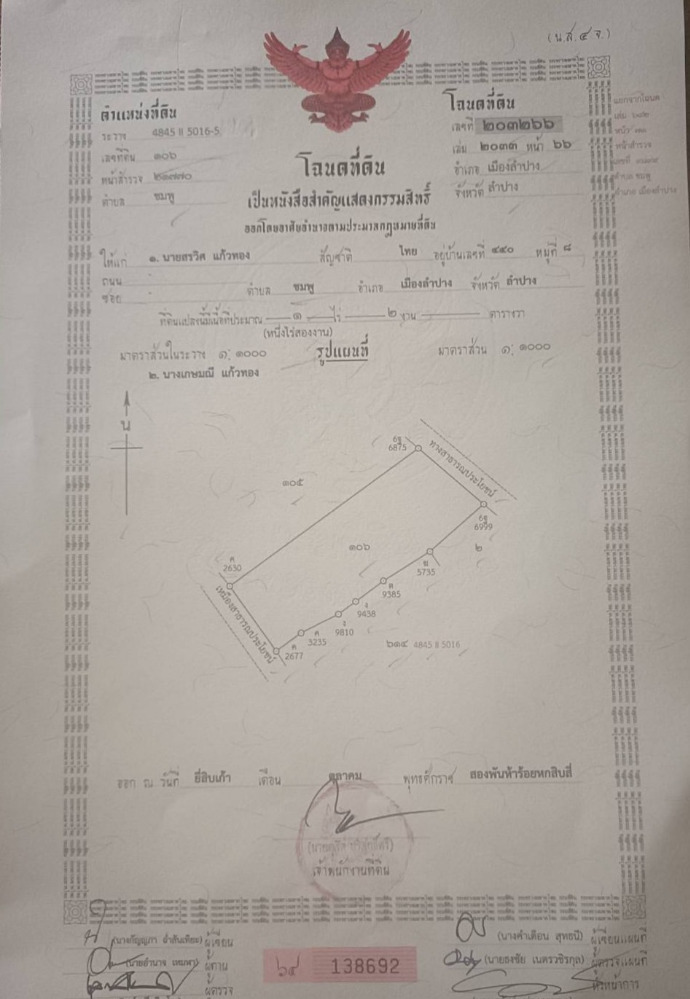 (น.ส.๔ จ.)
ตำแหน่งที่ดิน
ระวาง 4845 II 5016-5
เลขที่ดิน ๑๐๖
หน้าสำรวจ
ตำบล ชมพู
โฉนดที่ดิน
เลขที่ ๒๐๓๒๖๖
เล่ม ๒๐๓๓ หน้า ๖๖
อำเภอ เมืองลำปาง
จังหวัด ลำปาง
โฉนดที่ดิน
เป็นหนังสือสำคัญแสดงกรรมสิทธิ์
ออกโดยอาศัยอำนาจตามประมวลกฎหมายที่ดิน
ให้แก่ ๑. นายสรวิศ แก้วทอง สัญชาติ ไทย อยู่บ้านเลขที่ ๔๔๐ หมู่ที่ ๘
ถนน - ตำบล ชมพู อำเภอ เมืองลำปาง จังหวัด ลำปาง
ซอย
ที่ดินแปลงนี้มีเนื้อที่ประมาณ ๑ ไร่ ๒ งาน ตารางวา
(หนึ่งไร่สองงาน)
มาตราส่วนในระวาง ๑:๑๐๐๐ รูปแผนที่ มาตราส่วน ๑:๑๐๐๐
๒. นางเกษมณี แก้วทอง
น
6875
ทางสาธารณประโยชน์
๑๐๕
6999
๑๐๖
๒
5735
ค
2630
9385
9438
เหมืองสาธารณประโยชน์
9810
3235
2677
๖๑๔ 4845 II 5016
ออก ณ วันที่ ยี่สิบเก้า เดือน ตุลาคม พุทธศักราช สองพันห้าร้อยหกสิบสี่
เจ้าพนักงานที่ดิน
ผู้เขียน
ผู้ทาน
ผู้ตรวจ
๖๔ 138692
ผู้เขียนแผนที่
ผู้ตรวจแผนที่
หัวหน้าการ